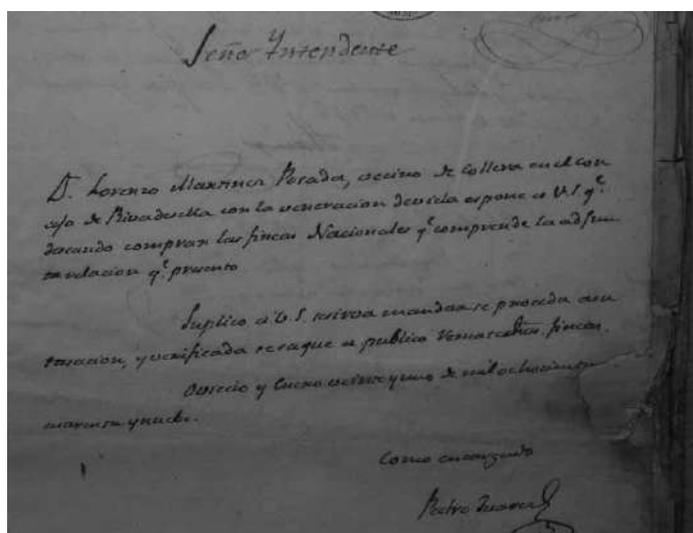 Señor Intendente
D. Lorenzo Martinez Posada, vecino de Collera en el con
cejo de Rivadesella con la veneracion devida espone a V.S. q.e
deseando comprar las fincas Nacionales q.e comprende la adjun
ta relacion q.e presento
Suplico á V.S. se sirva mandar se proceda a su
tasacion, y verificada se saque a publico Remate dhas. fincas.
Oviedo y Enero veinte y uno de mil ochocientos
cuarenta y nueve.
Como encargado
Pedro Suarez